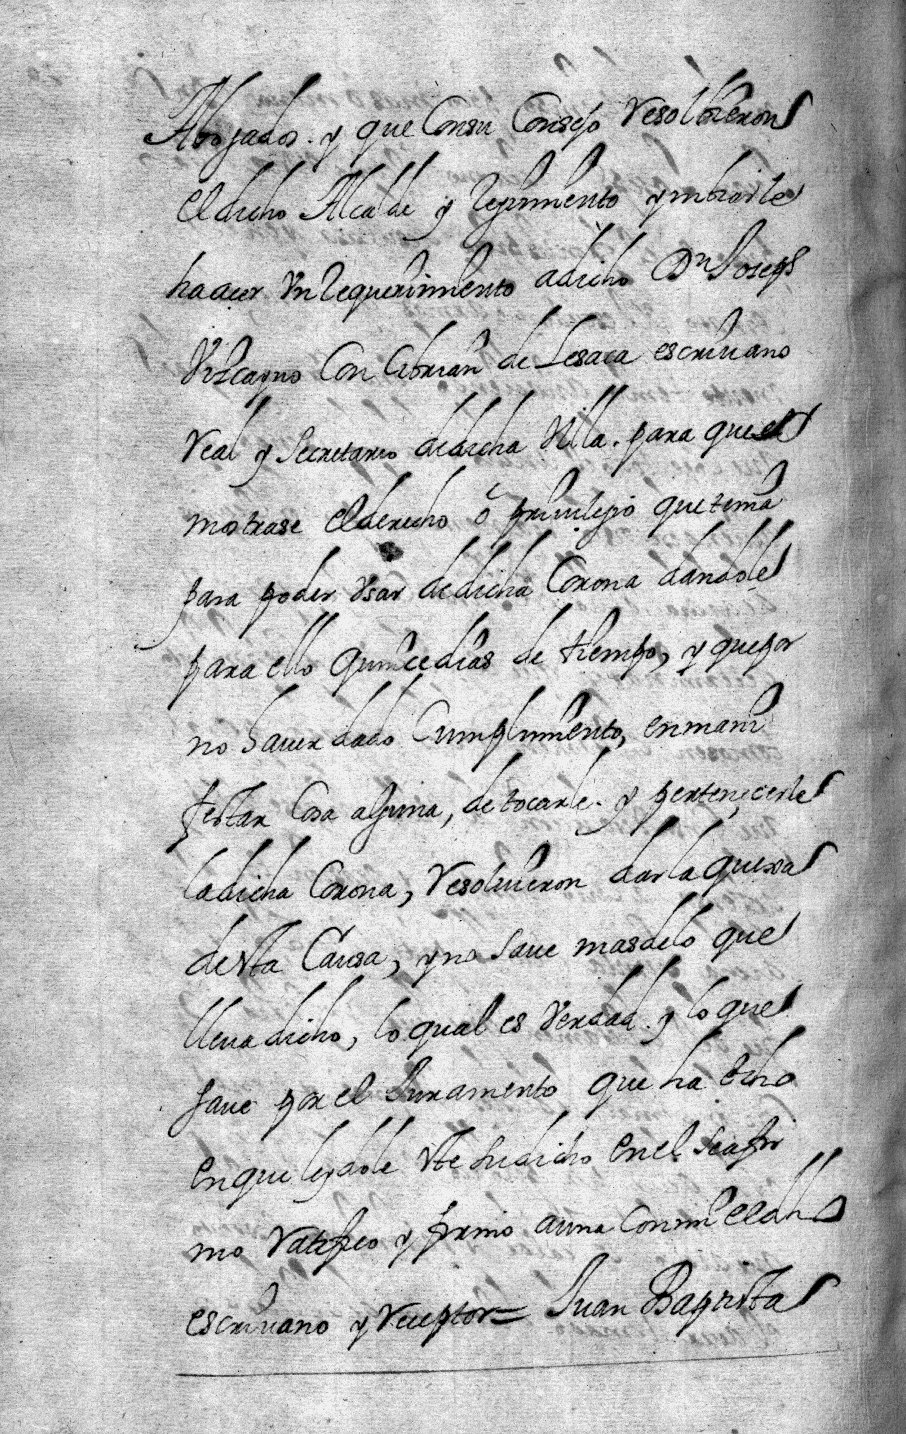 Abogados. y que Consu Consejo Resolbieron
el dicho Alcalde y Regimiento ymbiarle
ha acer Un Requerimiento a dicho Dn Joseph
Vizcayno Con Cibrian de Lesaca escriuano
Real y Secretario de dicha Villa. para que el
mostrase el derecho ô priuilejio que tenia
para poder Usar de dicha Corona dandole
para ello quince dias de tiempo, y que por
no hauer dado Cumplimiento, en mani
festar Cosa alguna, de tocarle. y pertenecerle
la dicha Corona, Resoluieron dar la quexa
desta Causa, y no saue mas de lo que
lleua dicho, lo qual es Verdad. y lo que
saue por el Juramento que ha echo
en que leydole este su dicho en el se afir
mo Ratifico y firmo a una Conmi el dho
escriuano y Receptor = Juan Baptista